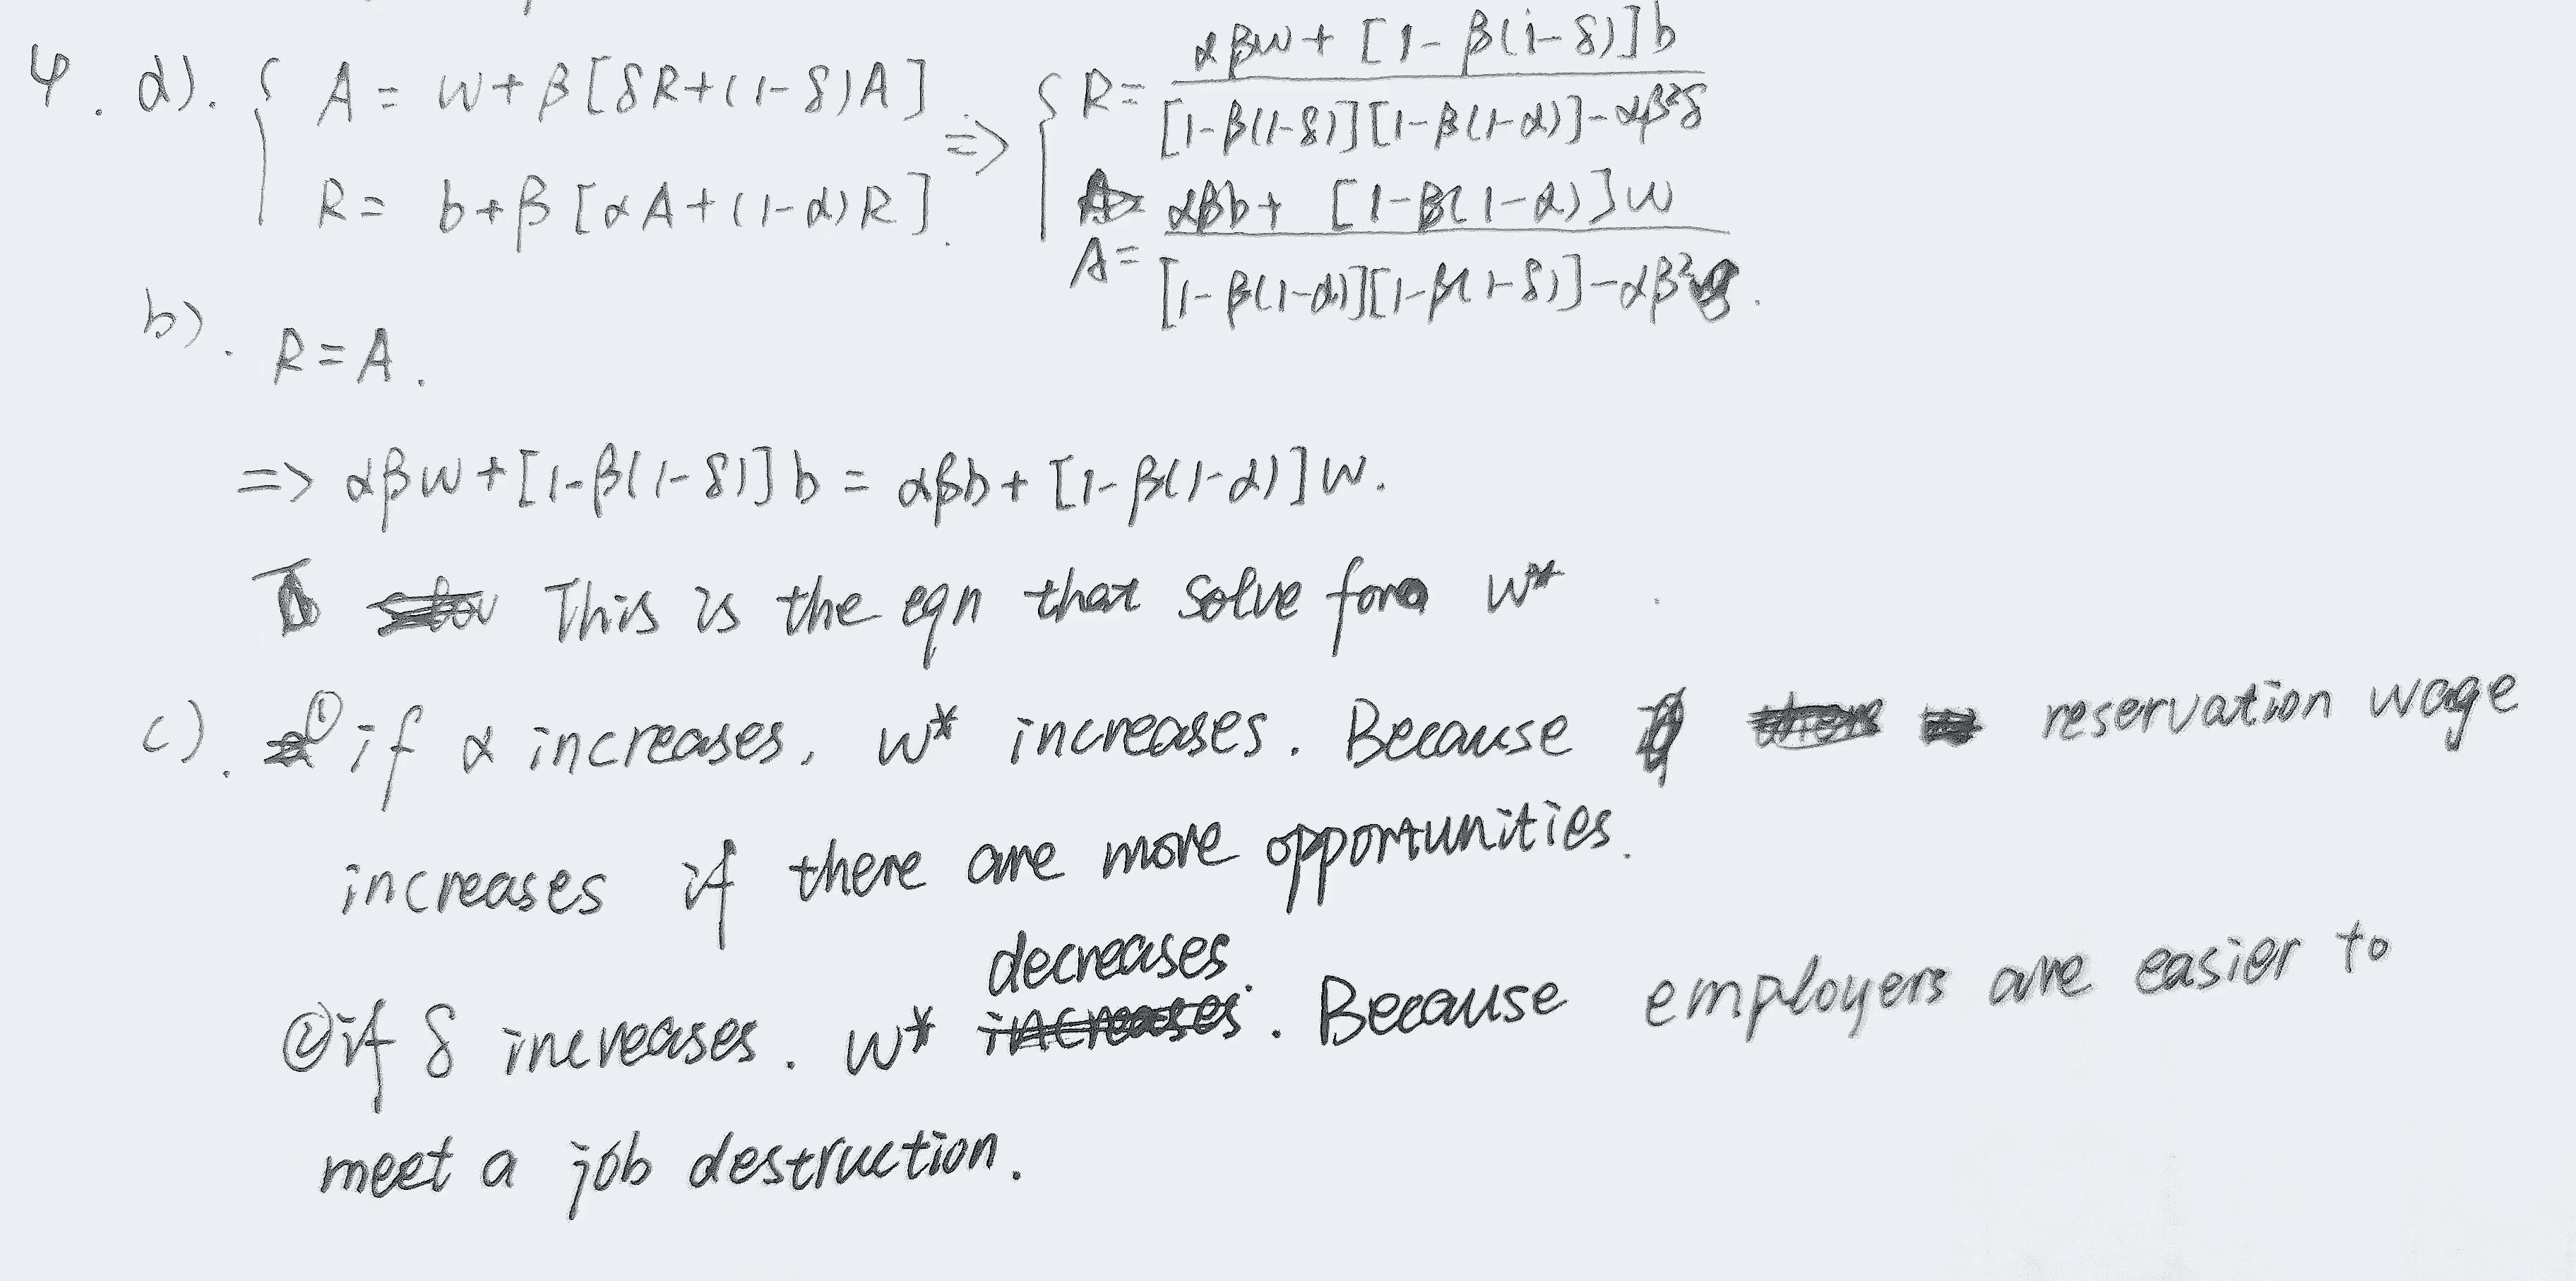 4. a). { A = w + β[δR+(1-δ)A] => { R = αβw + [1-β(1-δ)]b / [1-β(1-δ)][1-β(1-α)] - αβ²δ
R = b + β[αA+(1-α)R]. A = αβb + [1-β(1-α)]w / [1-β(1-α)][1-β(1-δ)] - αβ²δ.
b). R = A.
=> αβw + [1-β(1-δ)]b = αβb + [1-β(1-α)]w.
This is the eqn that solve for w*.
c). ① if α increases, w* increases. Because reservation wage
increases if there are more opportunities.
decreases.
② if δ increases. w* increases. Because employers are easier to
meet a job destruction.